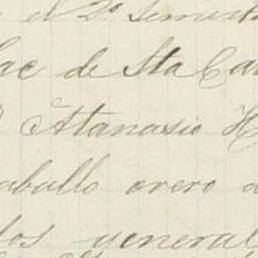 el 2º Semestr
de Sta Ca
Atanasio H
caballo overo d
dos general